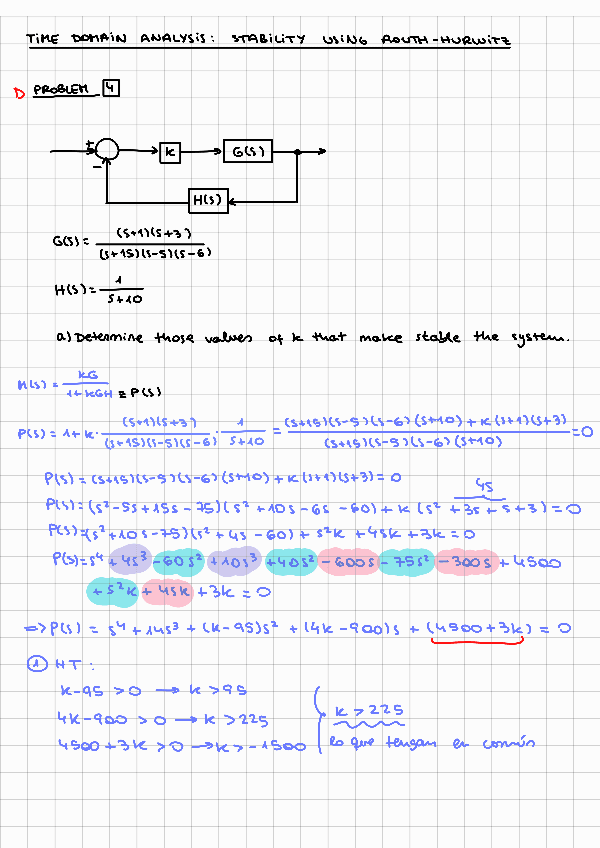 TIME DOMAIN ANALYSIS: STABILITY USING ROUTH-HURWITZ
D PROBLEM 4
+
-
K
G(s)
H(s)
G(s) = (s+1)(s+3) / (s+15)(s-5)(s-6)
H(s) = 1 / s+10
a) Determine those values of k that make stable the system.
M(s) = KG / 1+KGH ≡ P(s)
P(s) = 1+k· (s+1)(s+3) / (s+15)(s-5)(s-6) · 1 / s+10 = (s+15)(s-5)(s-6)(s+10)+k(s+1)(s+3) / (s+15)(s-5)(s-6)(s+10) = 0
P(s) = (s+15)(s-5)(s-6)(s+10)+k(s+1)(s+3) = 0
4s
P(s) = (s²-5s+15s-75)(s²+10s-6s-60)+k(s²+3s+s+3) = 0
P(s) = (s²+10s-75)(s²+4s-60)+s²k+4sk+3k = 0
P(s) = s⁴+4s³-60s²+10s³+40s²-600s-75s²-300s+4500
+s²k+4sk+3k = 0
=> P(s) = s⁴+14s³+(k-95)s²+(4k-900)s+(4500+3k) = 0
1 HT:
k-95 > 0 → k > 95
4k-900 > 0 → k > 225
k > 225
4500+3k > 0 → k > -1500
lo que tengan en común